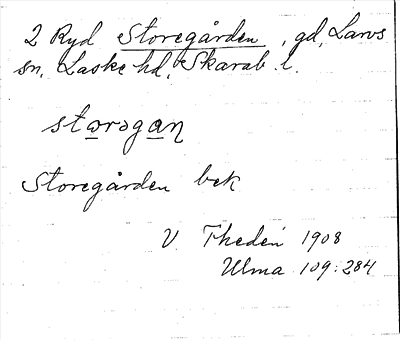 2 Ryd Storegården, gd, Larvs
sn, Laske hd, Skarab. l.
storəgaɳ
Storegården bek
V Thedén 1908
Ulma 109:284